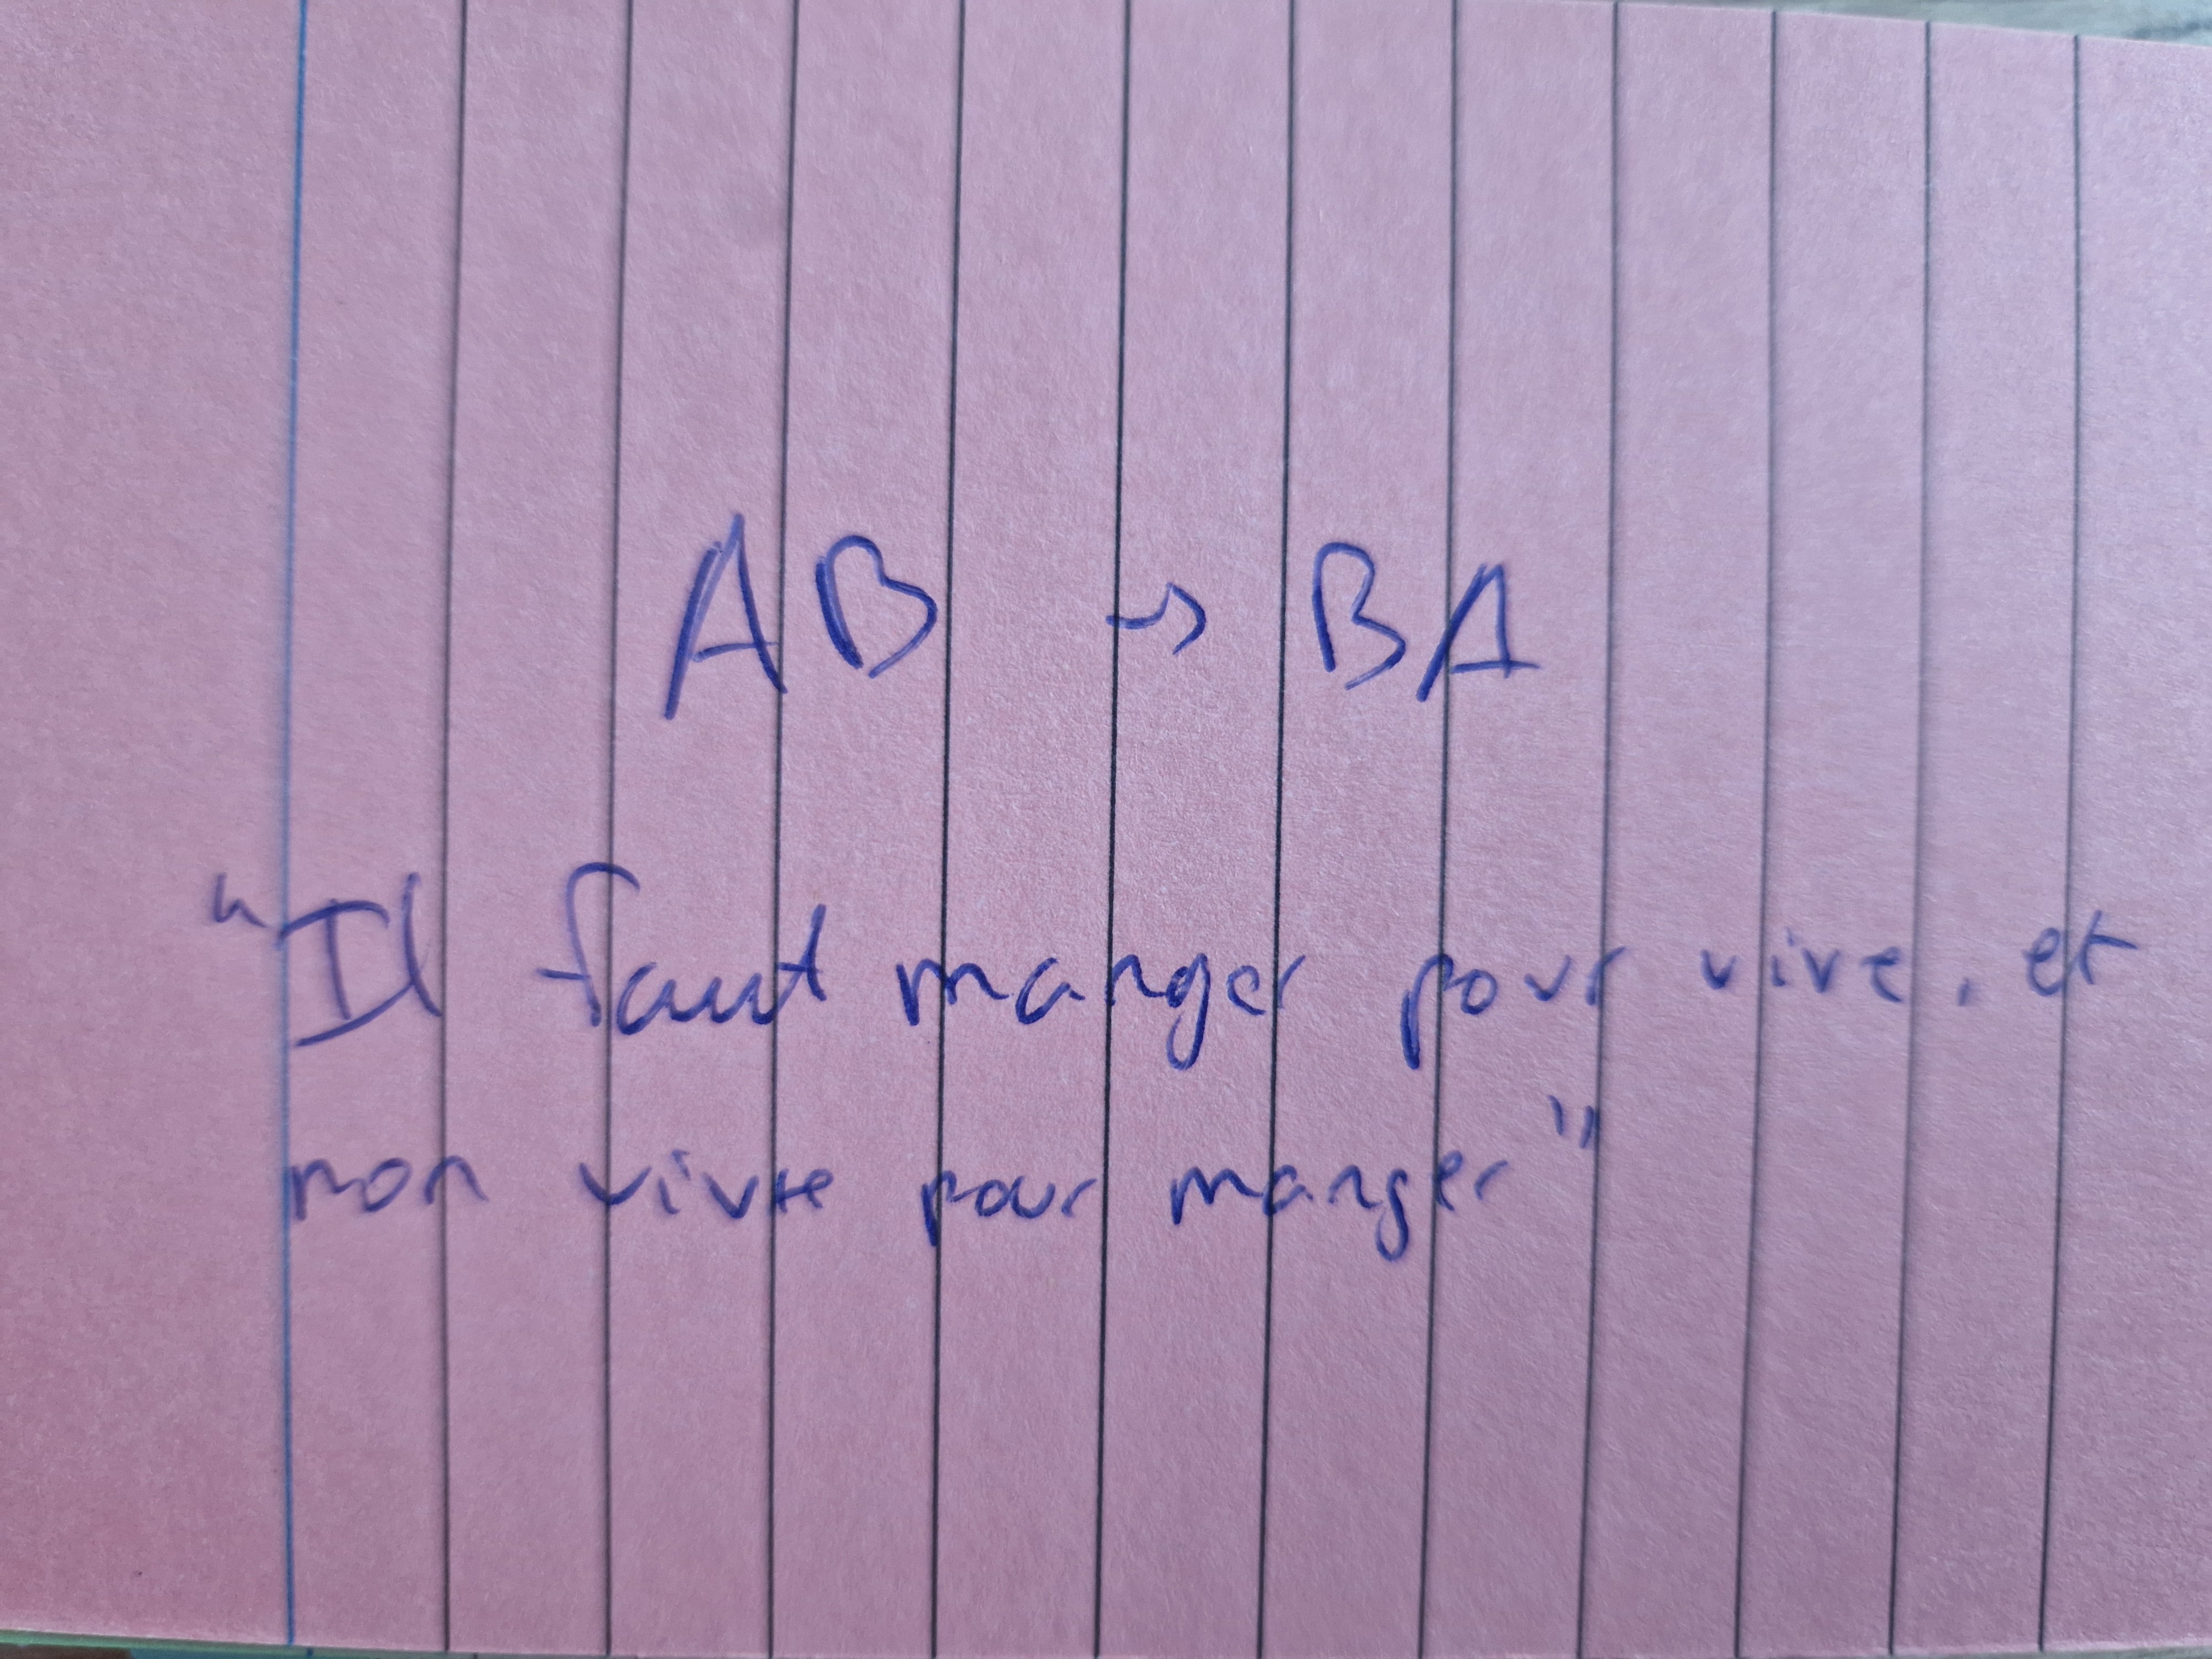 AB → BA
"Il faut manger pour vive, et
non vivre pour manger"